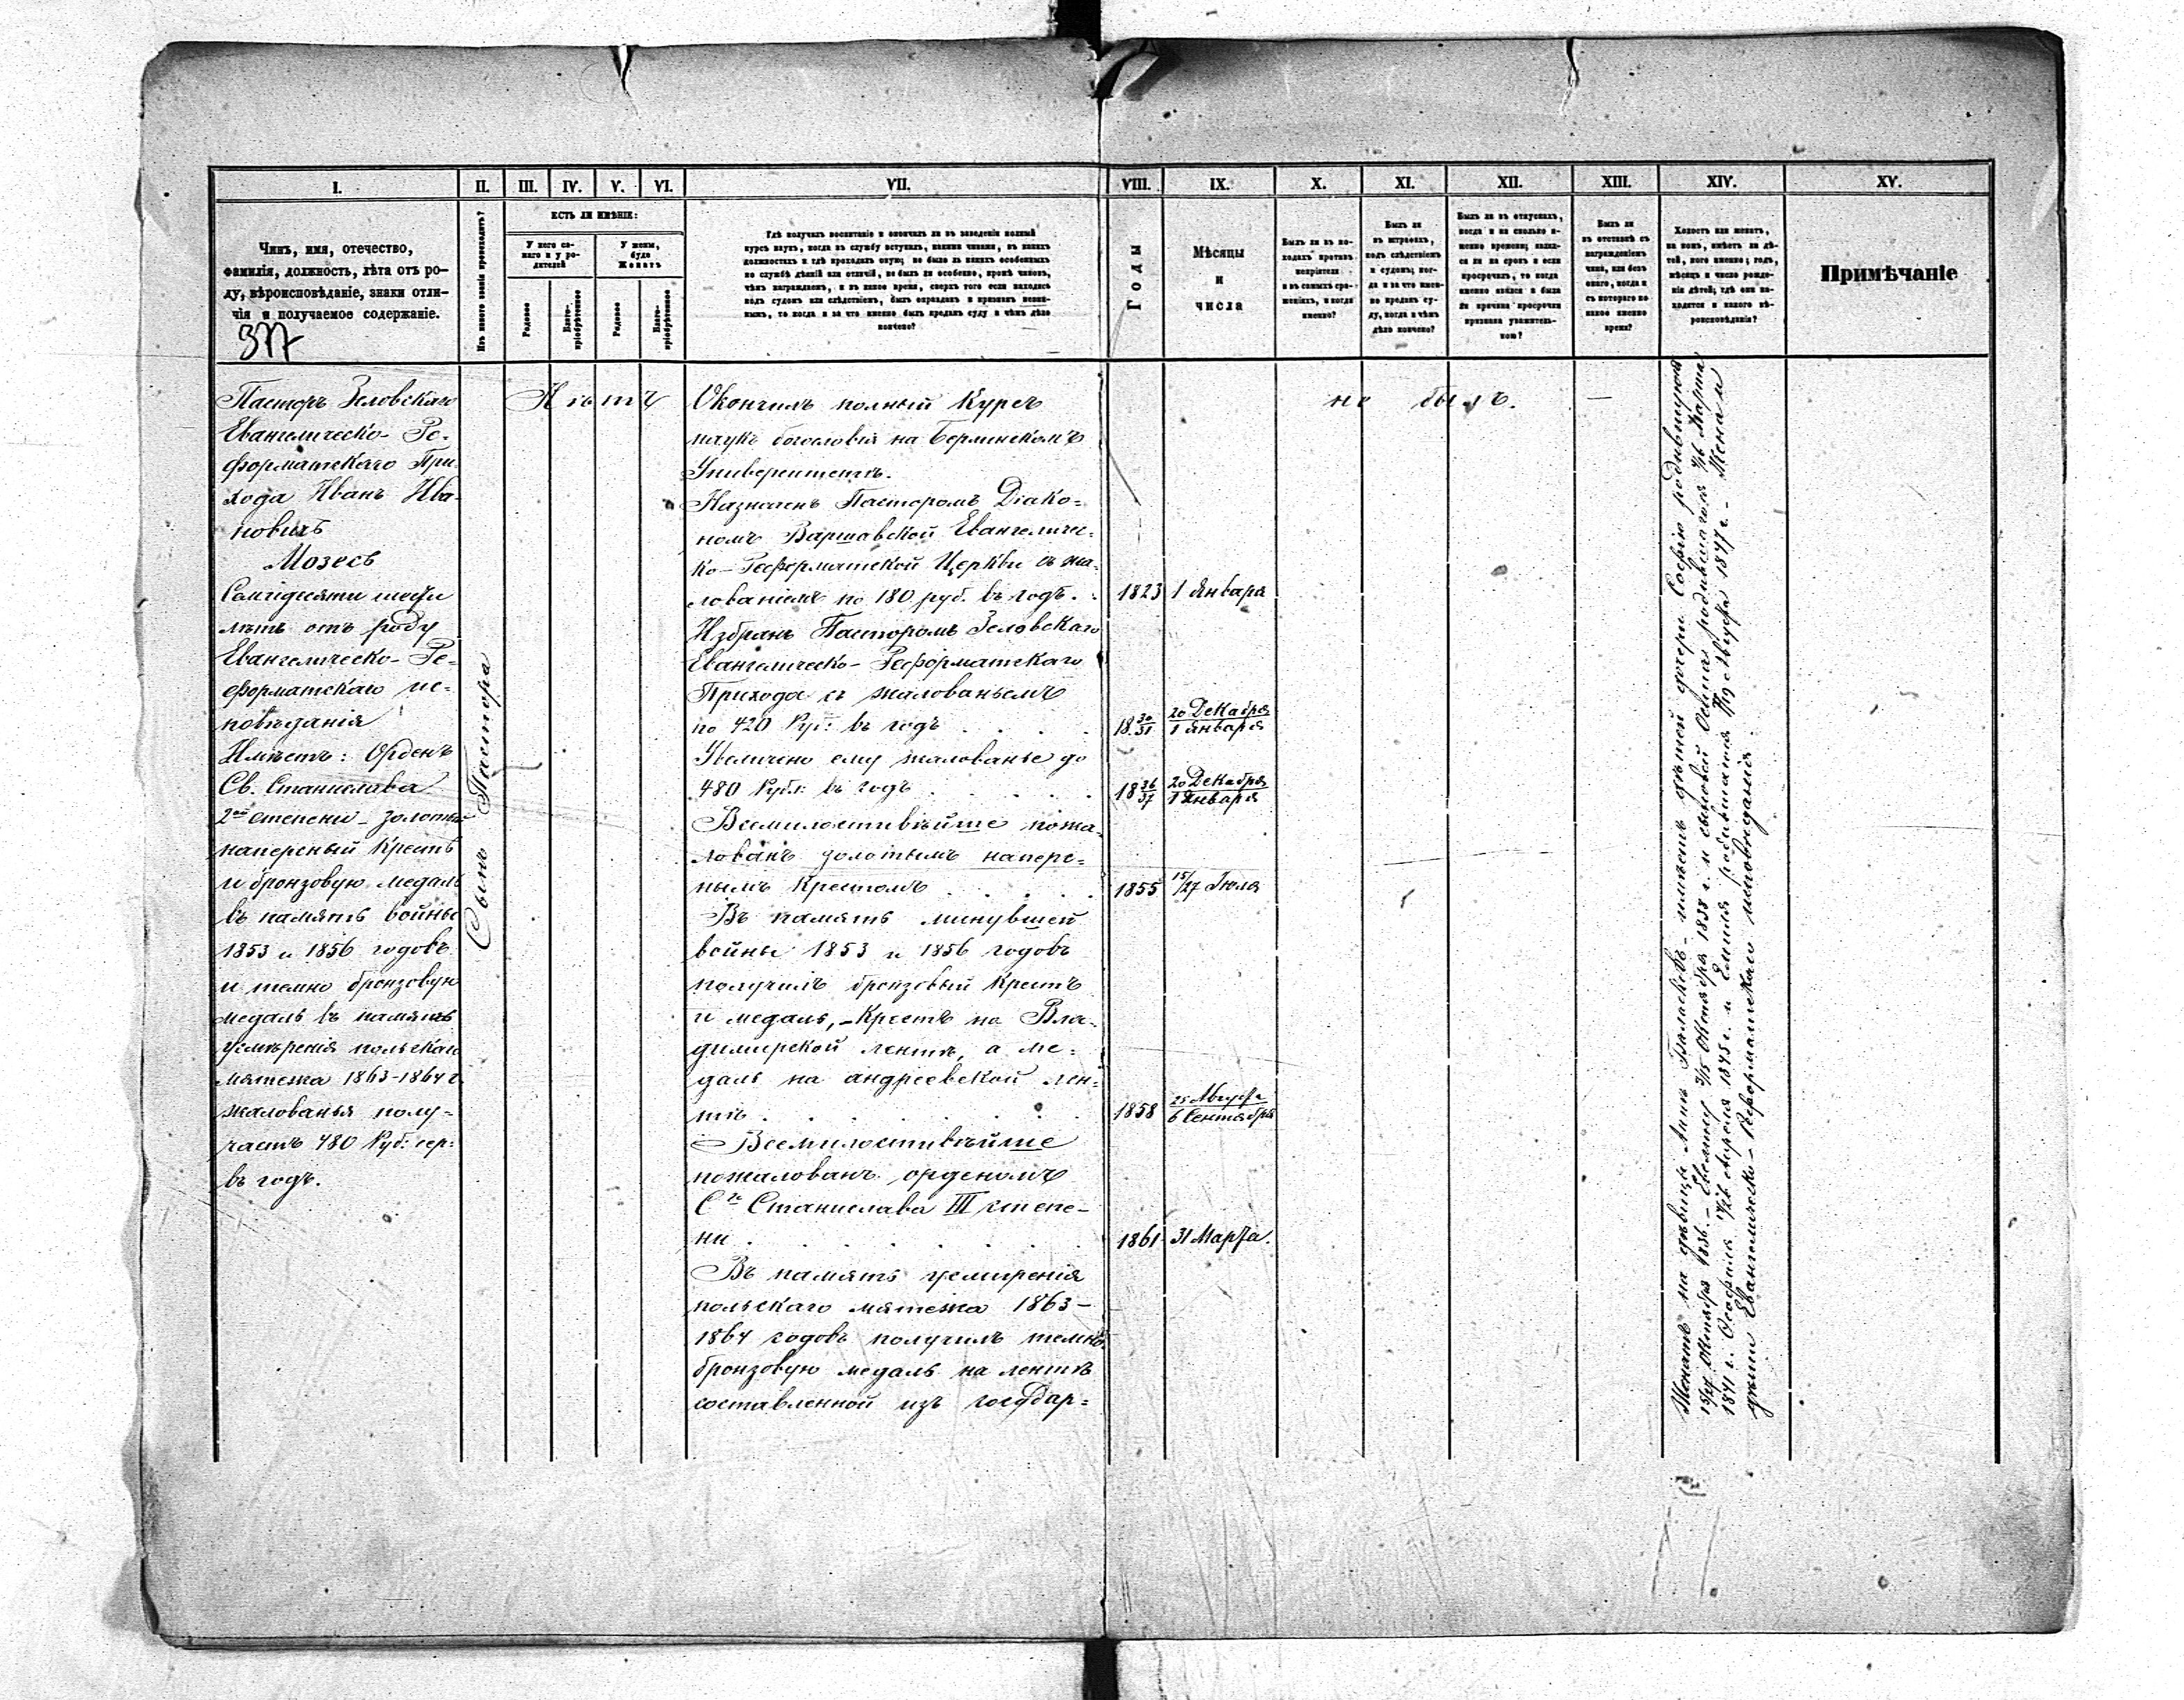 I.
II.
III.
IV.
V.
VI.
VII.
VIII.
IX.
X.
XI.
XII.
XIII.
XIV.
XV.
Чинъ, имя, отечество,
фамилія, должность, лѣта отъ ро-
ду, вѣроисповѣданіе, знаки отли-
чія и получаемое содержаніе.
377
Изъ какого званія происходитъ?
ЕСТЬ ЛИ ИМѢНІЕ:
У него са-
маго и у ро-
дителей
У жены,
буде
Женатъ
Родовое
Благо-
пріобрѣтенное
Родовое
Благо-
пріобрѣтенное
Гдѣ получилъ воспитаніе и окончилъ ли въ заведеніи полный
курсъ наукъ, когда въ службу вступилъ, какими чинами, въ какихъ
должностяхъ и гдѣ проходилъ оную; не было ль какихъ особенныхъ
по службѣ дѣяній или отличій, не былъ ли особенно, кромѣ чиновъ,
чѣмъ награждаемъ, и въ какое время, сверхъ того если находясь
подъ судомъ или слѣдствіемъ, былъ оправданъ и признанъ невин-
нымъ, то когда и за что именно былъ преданъ суду и чѣмъ дѣло
кончено?
Годы
Мѣсяцы
и
числа
Былъ ли въ по-
ходахъ противъ
непріятеля
и въ самыхъ сра-
женіяхъ, и когда
именно?
Былъ ли
въ штрафахъ,
подъ слѣдствіемъ
и судомъ; ког-
да и за что имен-
но преданъ су-
ду, когда и чѣмъ
дѣло кончено?
Былъ ли въ отпускахъ,
когда и на сколько и-
менно времени; являл-
ся ли на срокъ и если
просрочилъ, то когда
именно явился и была
ли причина просрочки
признана уважитель-
ною?
Былъ ли
въ отставкѣ съ
награжденіемъ
чина, или безъ
онаго, когда и
съ котораго по
какое именно
время?
Холостъ или женатъ,
на комъ, имѣетъ ли дѣ-
тей, кого именно; годъ,
мѣсяцъ и число рожде-
нія дѣтей; гдѣ они на-
ходятся и какого вѣ-
роисповѣданія?
Примѣчаніе
Пасторъ Зеловскаго
Евангелическо-Ре-
форматскаго При-
хода Иванъ Ива-
новичъ
Мозесъ
Семидесяти
лѣтъ отъ роду
Евангелическо-Ре-
форматскаго ис-
повѣданія
Имѣетъ: Орденъ
Св. Станислава
2ой степени - золотый
наперсный крестъ
и бронзовую медаль
въ память войны
1853 и 1856 годовъ
и темно бронзовую
медаль въ память
усмиренія польскаго
мятежа 1863-1864 г.
жалованья полу-
чаетъ 480 Руб: сер:
въ годъ.
Сынъ Пастора
Нѣтъ
Окончилъ полный Курсъ
наукъ богословія на Берлинскомъ
Университетѣ.
Назначенъ Пасторомъ Діако-
номъ Варшавской Евангеличес-
ко-Реформатской Церкви съ жа-
лованіемъ по 180 руб. въ годъ. 1823 1 Января
Избранъ Пасторомъ Зеловскаго
Евангелическо-Реформатскаго
Прихода съ жалованьемъ
по 420 Руб: въ годъ . . . . 18 30/31 20 Декабря/1 Января
Увеличено ему жалованье до
480 Рубл: въ годъ . . . . . 18 36/37 20 Декабря/1 Января
Всемилостивѣйше пожа-
лованъ золотымъ наперс-
нымъ Крестомъ . . . . . 1855 15/27 Іюля
Въ память минувшей
войны 1853 и 1856 годовъ
получилъ бронзовый Крестъ
и медаль, - Крестъ на Вла-
димирской лентѣ, а ме-
даль на андреевской лен-
тѣ . . . . . . . 1858 25 Августа/6 Сентября
Всемилостивѣйше
пожалованъ орденомъ
Сго Станислава III степе-
ни . . . . . . . 1861 31 Марта.
Въ память усмиренія
польскаго мятежа 1863-
1864 годовъ получилъ темно
бронзовую медаль на лентѣ
составленной изъ государ-
не былъ. —
Женатъ на дѣвицѣ Аннѣ - имѣетъ дѣтей дочери Софію родившуюся
15/27 Октября 1836. - 3/15 Октября 1838 г. и сыновей Осипа родившагося 4/16 Марта
1841 г. Апрѣля 1845 г. и Эмиля родившагося Августа 1847 г. - Жена и
дѣти Евангелическо-Реформатскаго исповѣданія.